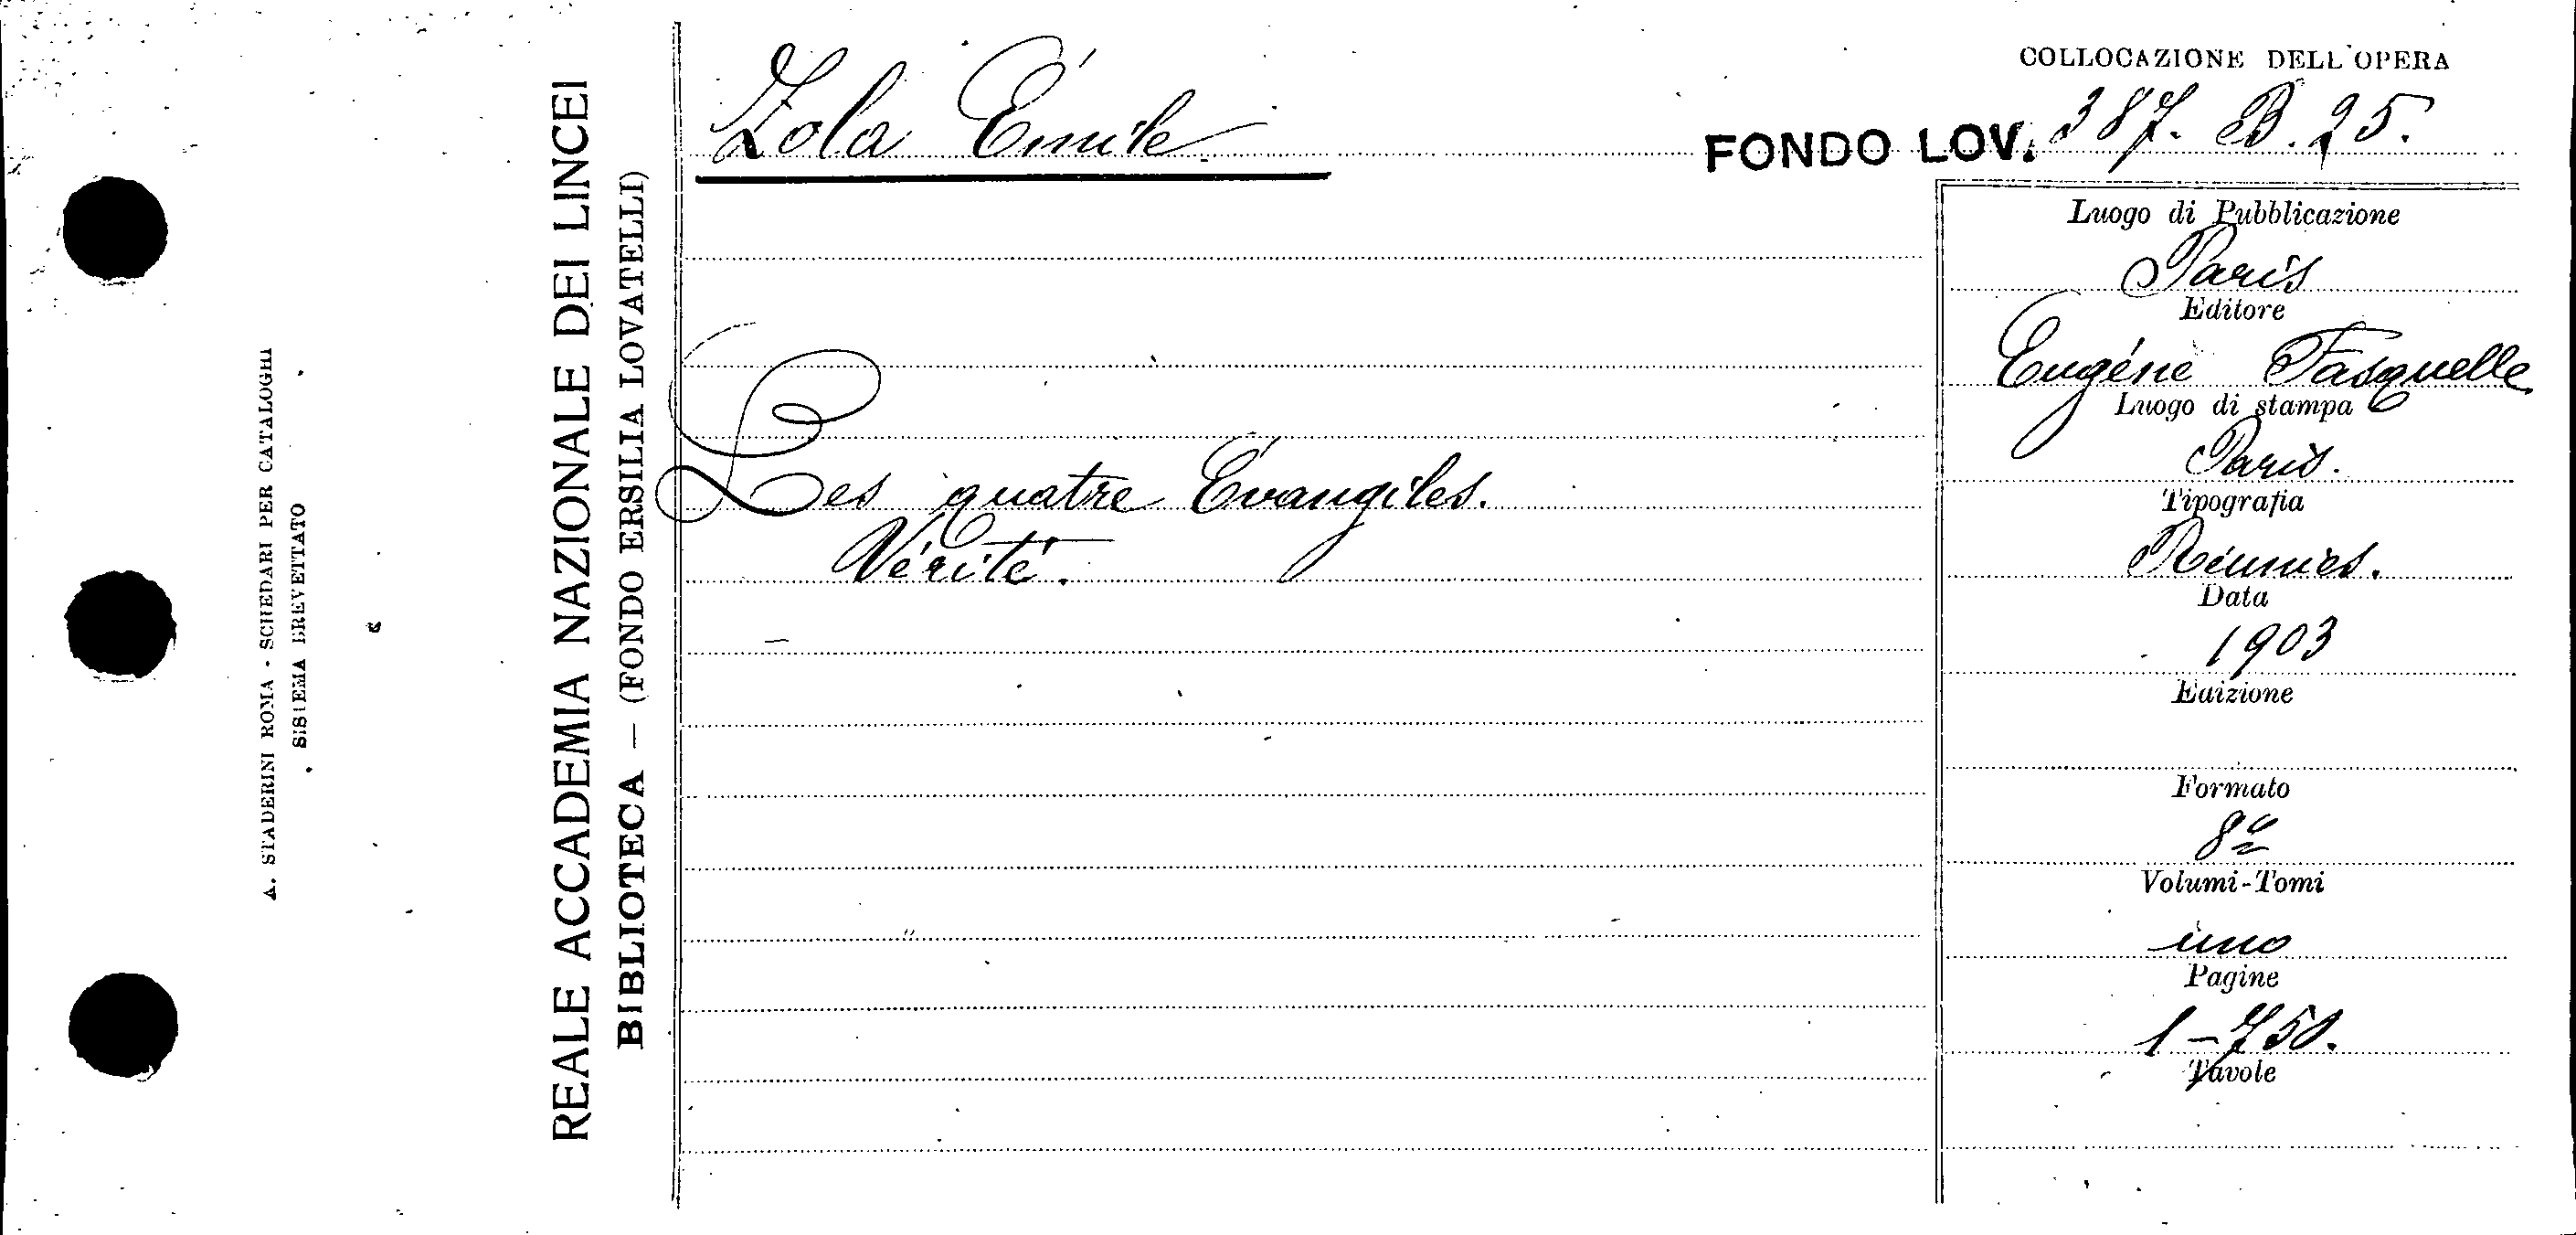 A. STADERINI ROMA - SCHEDARI PER CATALOGHI
SISTEMA BREVETTATO
REALE ACCADEMIA NAZIONALE DEI LINCEI
BIBLIOTECA — (FONDO ERSILIA LOVATELLI)
Zola Émile
COLLOCAZIONE DELL'OPERA
FONDO LOV. 387. B. 25.
Les quatre Évangiles.
Vérité.
Luogo di Pubblicazione
Paris
Editore
Eugéne Fasquelle
Luogo di stampa
Paris.
Tipografia
Data
1903
Edizione
Formato
8º
Volumi-Tomi
uno
Pagine
1-750.
Tavole